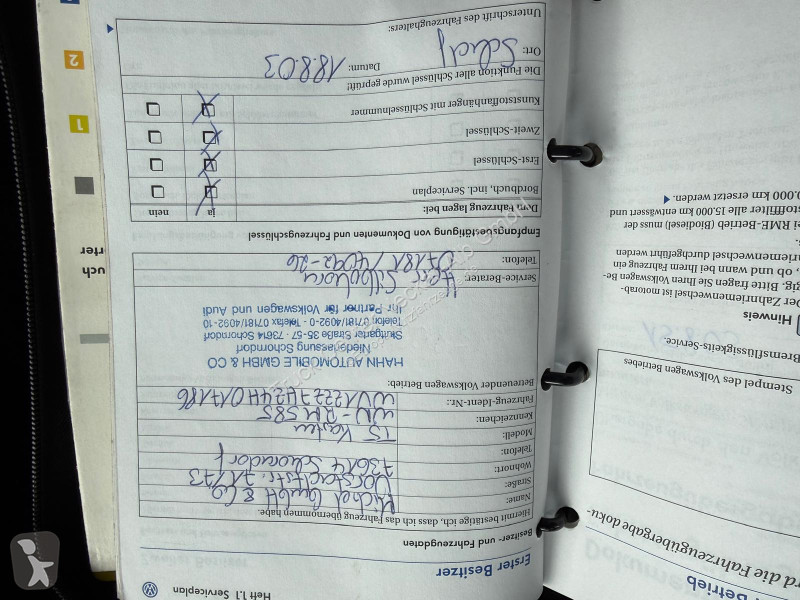 Heft 1.1 Serviceplan
Erster Besitzer
Besitzer- und Fahrzeugdaten
Hiermit bestätige ich, dass ich das Fahrzeug übernommen habe.
Name: Michel GmbH & Co
Straße: Vorstadtstr. 71/73
Wohnort: 73614 Schorndorf
Telefon:
Modell: T5 Kasten
Kennzeichen: WN-RM 585
Fahrzeug-Ident-Nr.: WV1ZZZ7HZ4H017186
Betreuender Volkswagen Betrieb:
HAHN AUTOMOBILE GMBH & CO
Niederlassung Schorndorf
Stuttgarter Straße 35-57 · 73614 Schorndorf
Telefon 07181/4092-0 · Telefax 07181/4092-10
Ihr Partner für Volkswagen und Audi
Service-Berater: Herr
Telefon: 07181/4092-26
Empfangsbestätigung von Dokumenten und Fahrzeugschlüssel
Dem Fahrzeug lagen bei: ja nein
Bordbuch, incl. Serviceplan
Erst-Schlüssel
Zweit-Schlüssel
Kunststoffanhänger mit Schlüsselnummer
Die Funktion aller Schlüssel wurde geprüft
Ort: Datum: 18.8.03
Unterschrift des Fahrzeughalters:
Betrieb
rd die Fahrzeugübergabe doku-
Stempel des Volkswagen Betriebes
Bremsflüssigkeits-Service.
Hinweis
Der Zahnriemenwechsel ist motorab-
gig. Bitte fragen Sie Ihren Volkswagen Be-
, ob und wann bei Ihrem Fahrzeug ein
riemenwechsel durchgeführt werden
ei RME-Betrieb (Biodiesel) muss der
stofffilter alle 15.000 km entwässert und
0.000 km ersetzt werden.
1
2